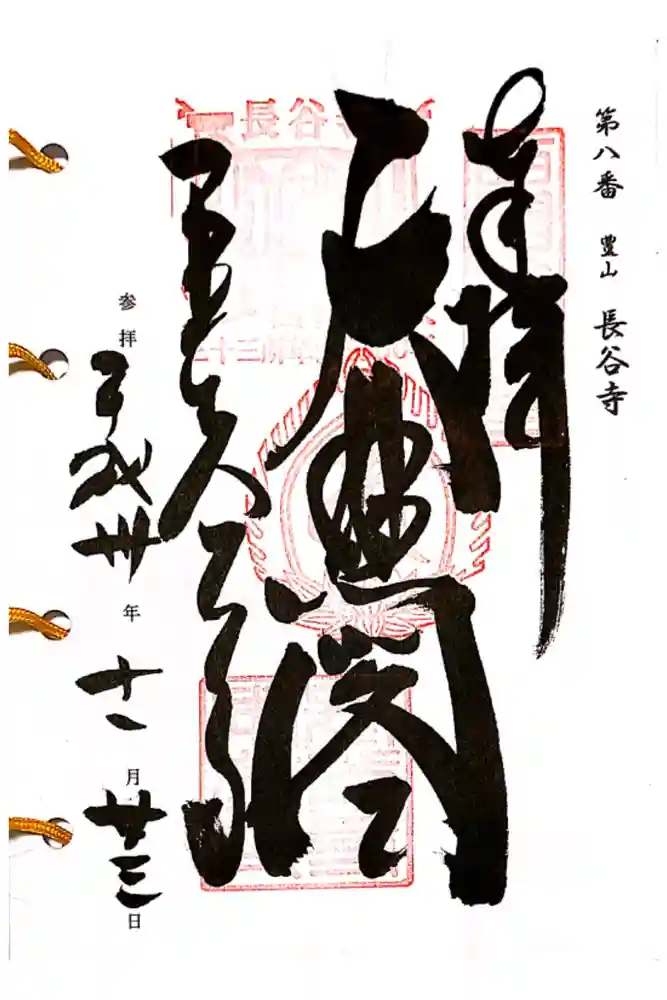 第八番 豊山 長谷寺
奉拝
大悲閣
長谷寺
参拝 平成卅年 十一月 廿三日